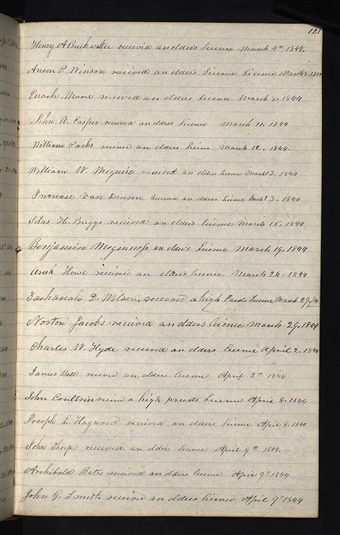 181
Henry A Buckwalter received an elders license March 9th 1844
Anson P. Winsor received an elders license License March 1844
Enoch Moore received an elders licence March 1844
John A. Casper received an elders license March 11 1844
William Parks received an elders license March 12. 1844
William W. Meguire received an elders license March 13. 1844
Increase Van Deusen an elders license March 13. 1844
Silas H. Briggs received an elders licence March 15. 1844
Benjamin Meginness an elders license March 19. 1844
Howe received an elders license March 24. 1844
Zachariah D. Wilson received a high Priests License March 1844
Norton Jacobs received an elders license March 29. 1844
Charles W. Hyde received an elders license April 2. 1844
James Bell received an elders license April 3d 1844
John a high priests license April 8. 1844
Joseph L. Haywood received an elders license April 8. 1844
John Tharp received an elders license April 9th 1844.
Archibald Bates received an elders license April 9th 1844
John G. Smith received an elders licence April 9th 1844